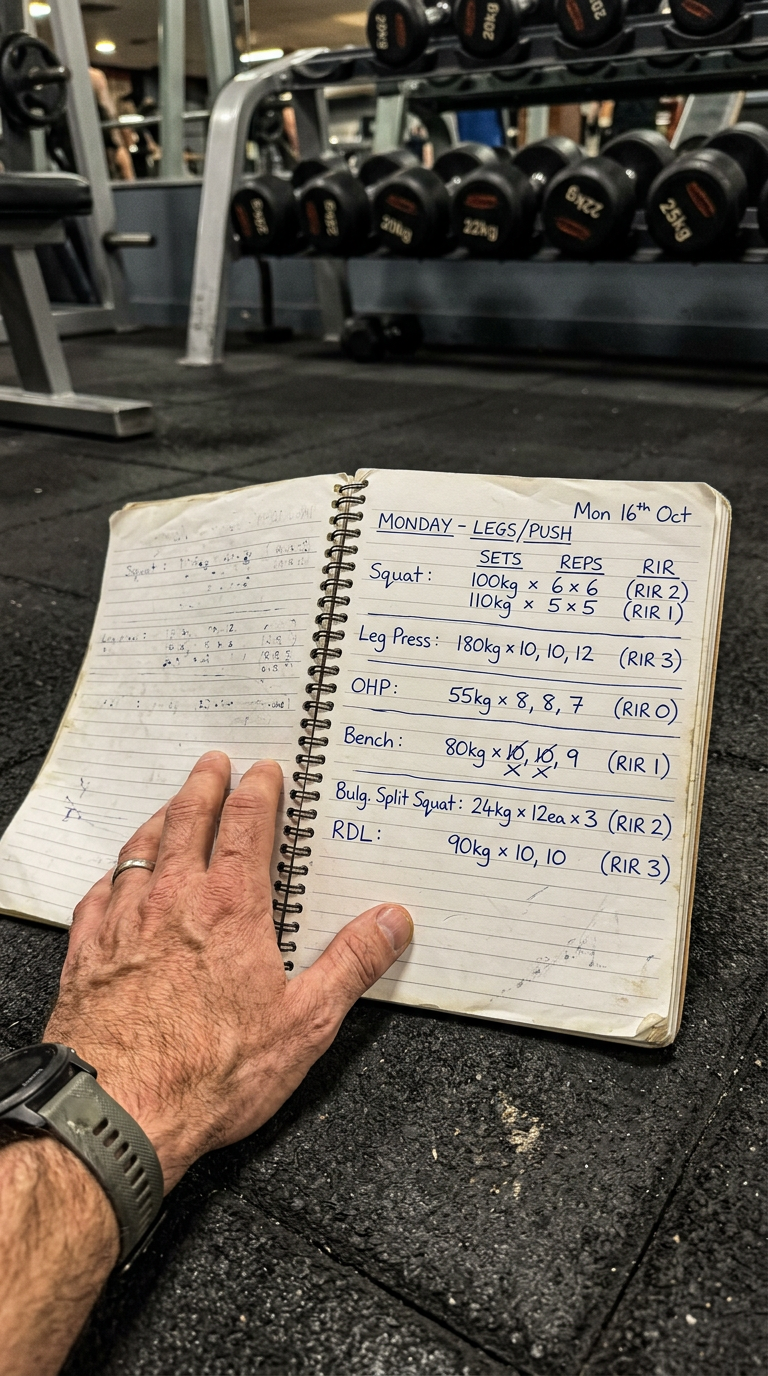 20kg
20kg
20kg
22kg
22kg
25kg
Mon 16th Oct
MONDAY - LEGS/PUSH
SETS REPS RIR
Squat: 100kg × 6 × 6 (RIR 2)
110kg × 5 × 5 (RIR 1)
Leg Press: 180kg × 10, 10, 12 (RIR 3)
OHP: 55kg × 8, 8, 7 (RIR 0)
Bench: 80kg × 10, 10, 9 (RIR 1)
x x
Bulg. Split Squat: 24kg × 12ea × 3 (RIR 2)
RDL: 90kg × 10, 10 (RIR 3)
Squat: